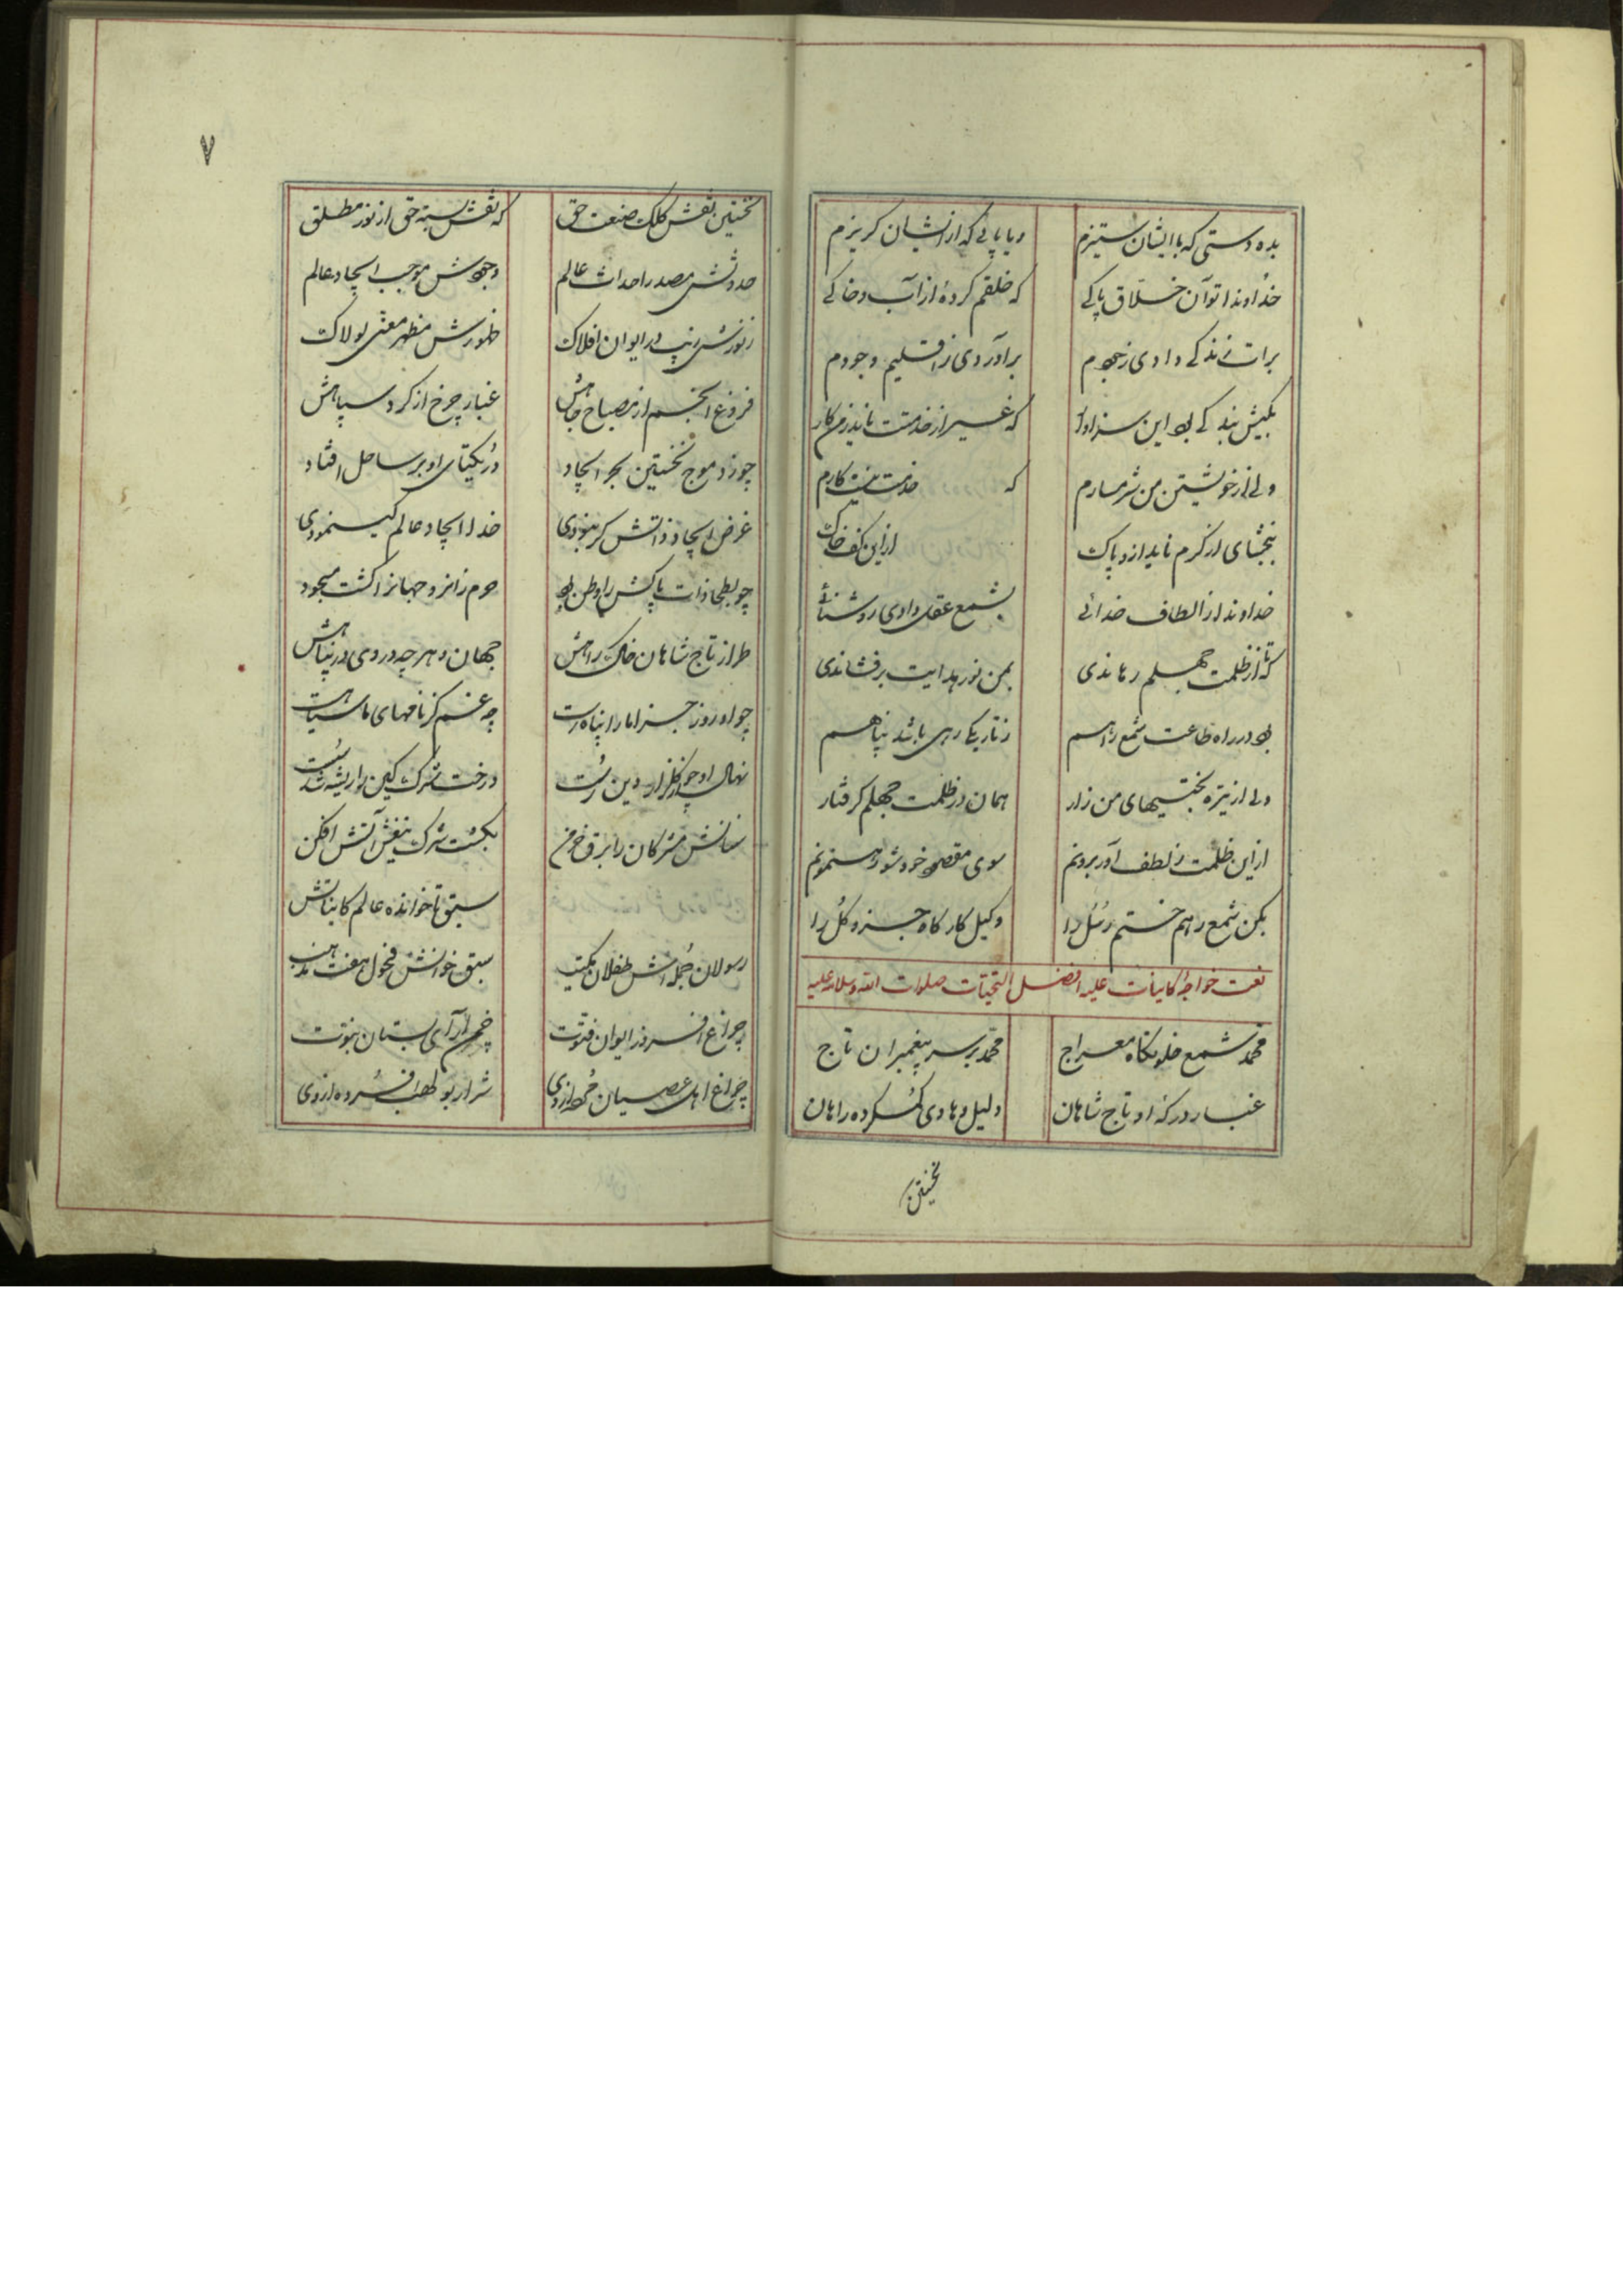 بده دستی که با ایشان ستیزم و یا پائی که از ایشان کریزم
خداوندا تو آن خلاق پاکی که خلقم کردهٔ از آب و خاکی
برات زندکی دادی ز جودم برآوردی ز اقلیم وجودم
بکیش بندکی بود این سزاوار که غیر از خدمتت ناید ز من کار
ولی از خویشتن من شرمسارم که خدمت نیست کارم
ببخشای از کرم ناید ازو پاک از این کف خاک
خداوندا ز الطاف خدائی بشمع عقل دادی روشنائی
که تا از ظلمت جهلم رهاندی بمن نور هدایت برفشاندی
بود در راه طاعت شمع راهم ز تاریکی رهی باشد پناهم
ولی از تیره بختیهای من زار همان در ظلمت جهلم کرفتار
از این ظلمت ز لطف آور برونم سوی مقصود خود شو رهنمونم
بکن شمع رهم ختم رسل را وکیل کارکاه جزو و کل را
نعت خواجهٔ کاینات علیه افضل التحیات صلوات الله و سلامه علیه
محمد شمع خلوتکاه معراج محمد بر سر پیغمبران تاج
غبار درکه او تاج شاهان دلیل و هادی کم کرده راهان
نخستین
۷
نخستین نقش کلک صنعت حق که نقشش بسته حق از نور مطلق
حدوثش مصدر احداث عالم وجودش موجب ایجاد عالم
ز نورش زیب در ایوان افلاک ظهورش مظهر معنی لولاک
فروغ انجم از مصباح جاهش غبار چرخ از کرد سپاهش
چو زد موج نخستین بحر ایجاد در یکتای او بر ساحل افتاد
غرض ایجاد ذاتش کر نبودی خدا ایجاد عالم کی نمودی
چو بطحا ذات پاکش را وطن بود حرم زانرو جهانرا کشت مسجود
طراز تاج شاهان خاک راهش جهان و هر چه در وی در پناهش
چو او روز جزا ما را پناهست چه غم کر نامهای ما سیاهست
نهال او چو از کلزار دین رست درخت شرک کین را ریشه شد سست
سنانش مشرکان را برق خرمن بکشت شرک تیغش آتش افکن
سبق ناخوانده عالم کاینانش
رسولان جمله‌اش طفلان مکتب سبق خوانش فحول هفت مذهب
چراغ افروز ایوان فتوت چمن آرای بستان نبوت
چراغ اهل عصیان خرم از وی شرار بو لهب افسرده از وی